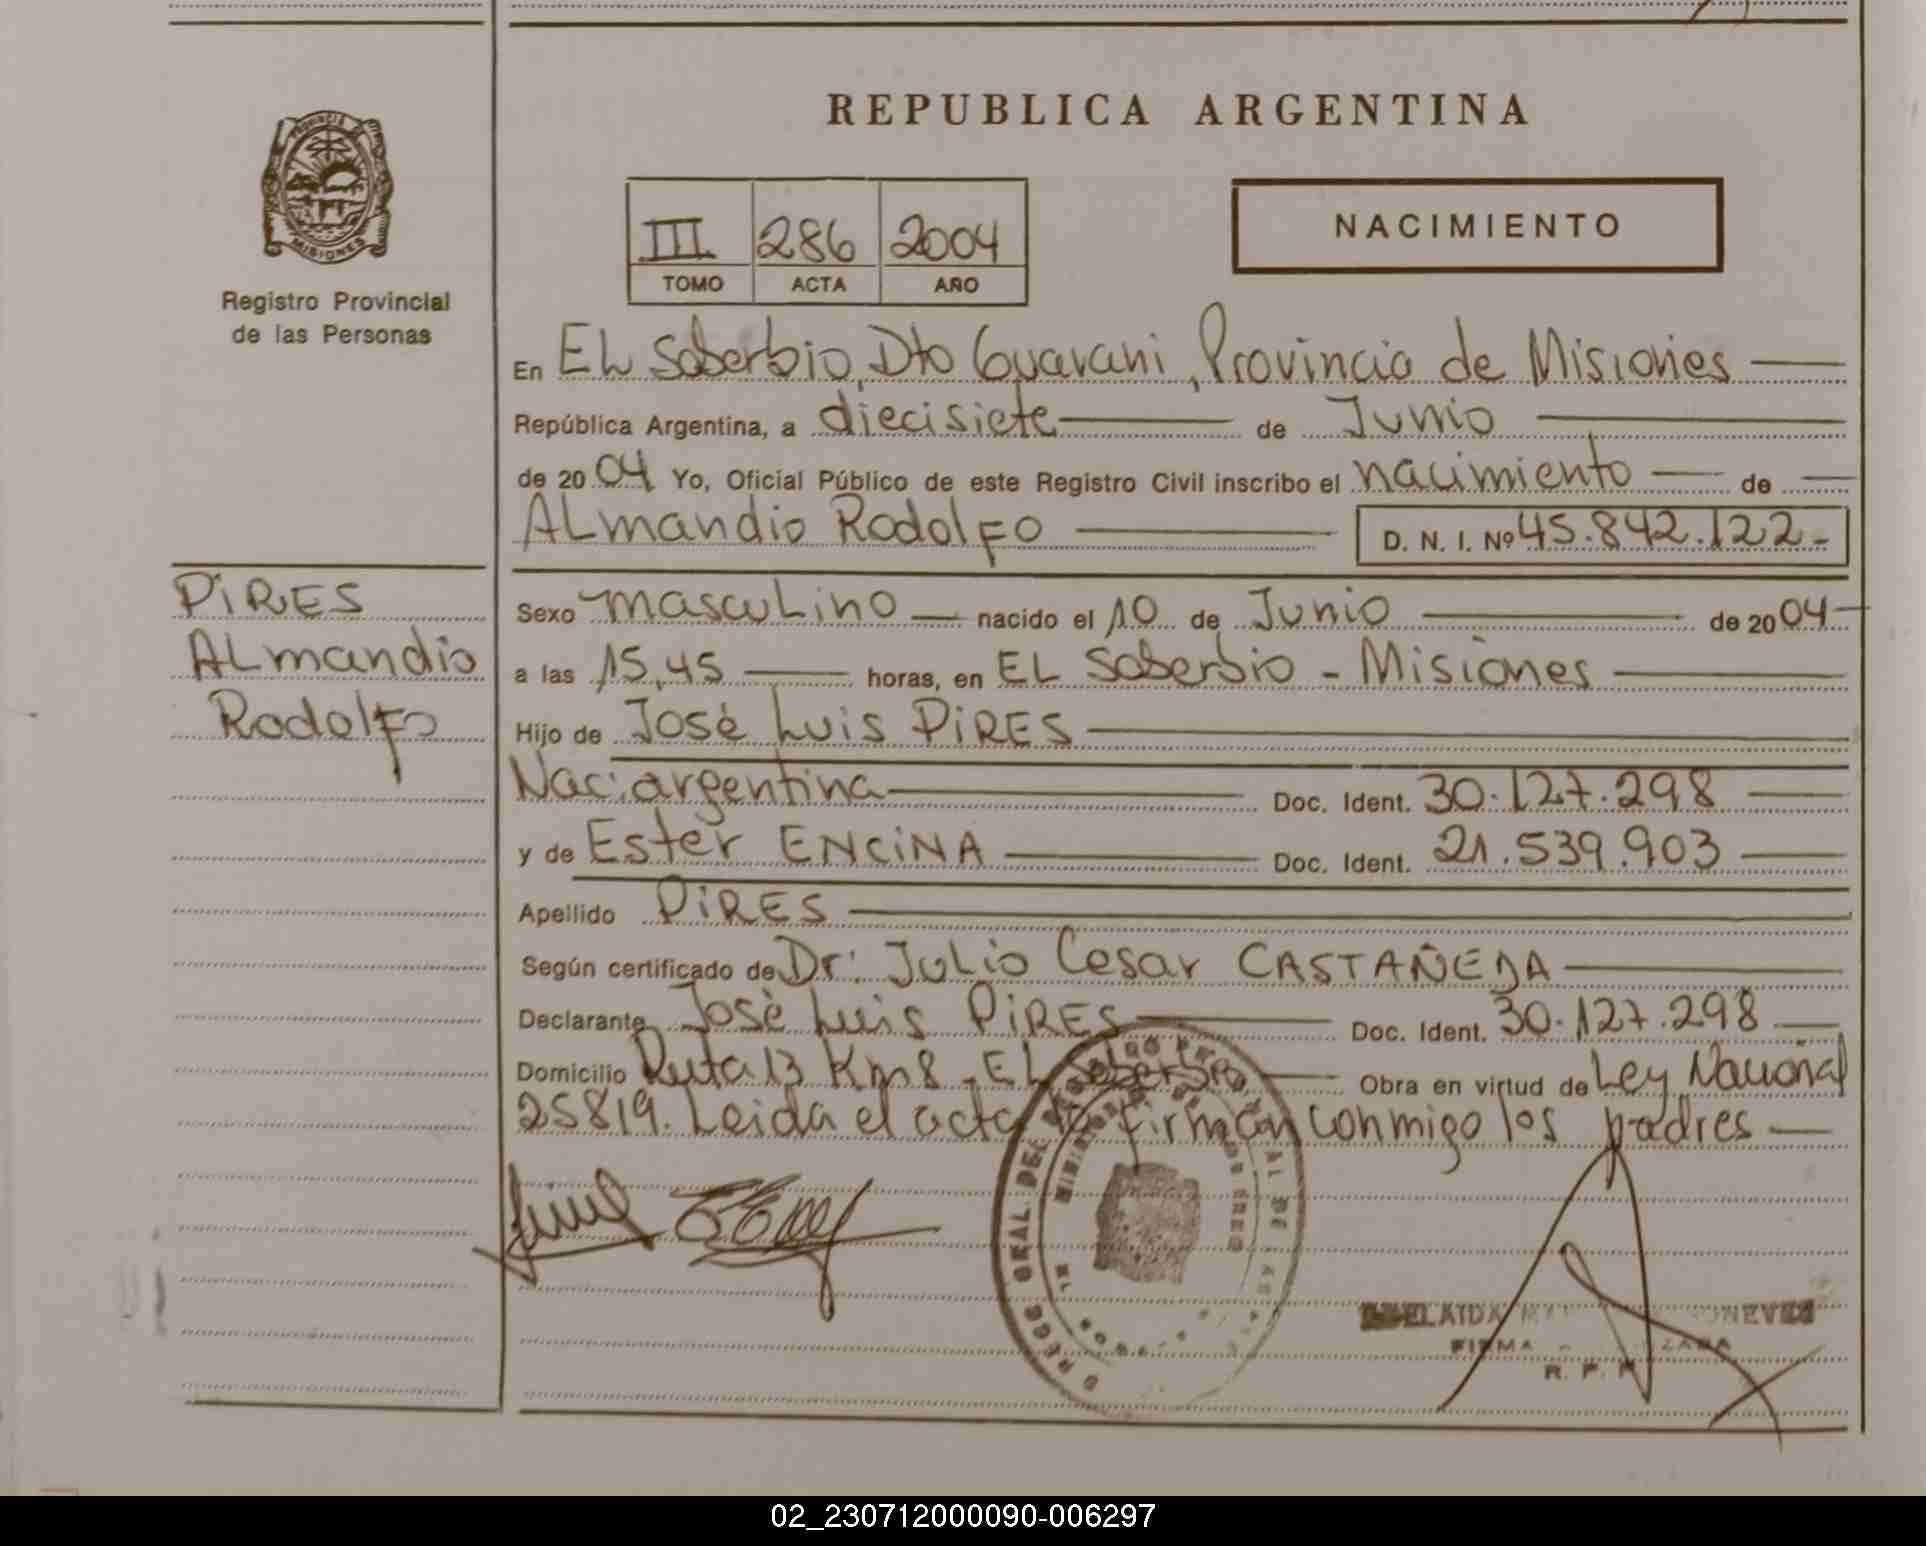 REPUBLICA ARGENTINA
PROVINCIA DE
MISIONES
Registro Provincial
de las Personas
III 286 2004
TOMO ACTA AÑO
NACIMIENTO
En EL Soberbio, Dto Guarani, Provincia de Misiones
República Argentina, a diecisiete de Junio
de 2004 Yo, Oficial Público de este Registro Civil inscribo el nacimiento de
ALmandio RodolFo D. N. I. Nº 45.842.122-
PIRES
ALmandio
RodolFo
Sexo mascuLino nacido el 10 de Junio de 2004
a las 15,45 horas, en EL Soberbio - Misiones
Hijo de José Luis PIRES
Nac: argentina Doc. Ident. 30.127.298
y de Ester ENCINA Doc. Ident. 21.539.903
Apellido PIRES
Según certificado de Dr: JuLio Cesar CASTAÑEDA
Declarante José Luis PIRES Doc. Ident. 30.127.298
Domicilio Ruta 13 Km 8 - EL Soberbio Obra en virtud de Ley Nacional
25819. Leida el acta la firman conmigo los padres
GRAL. DEL
FIRMA
R. P.
02_230712000090-006297